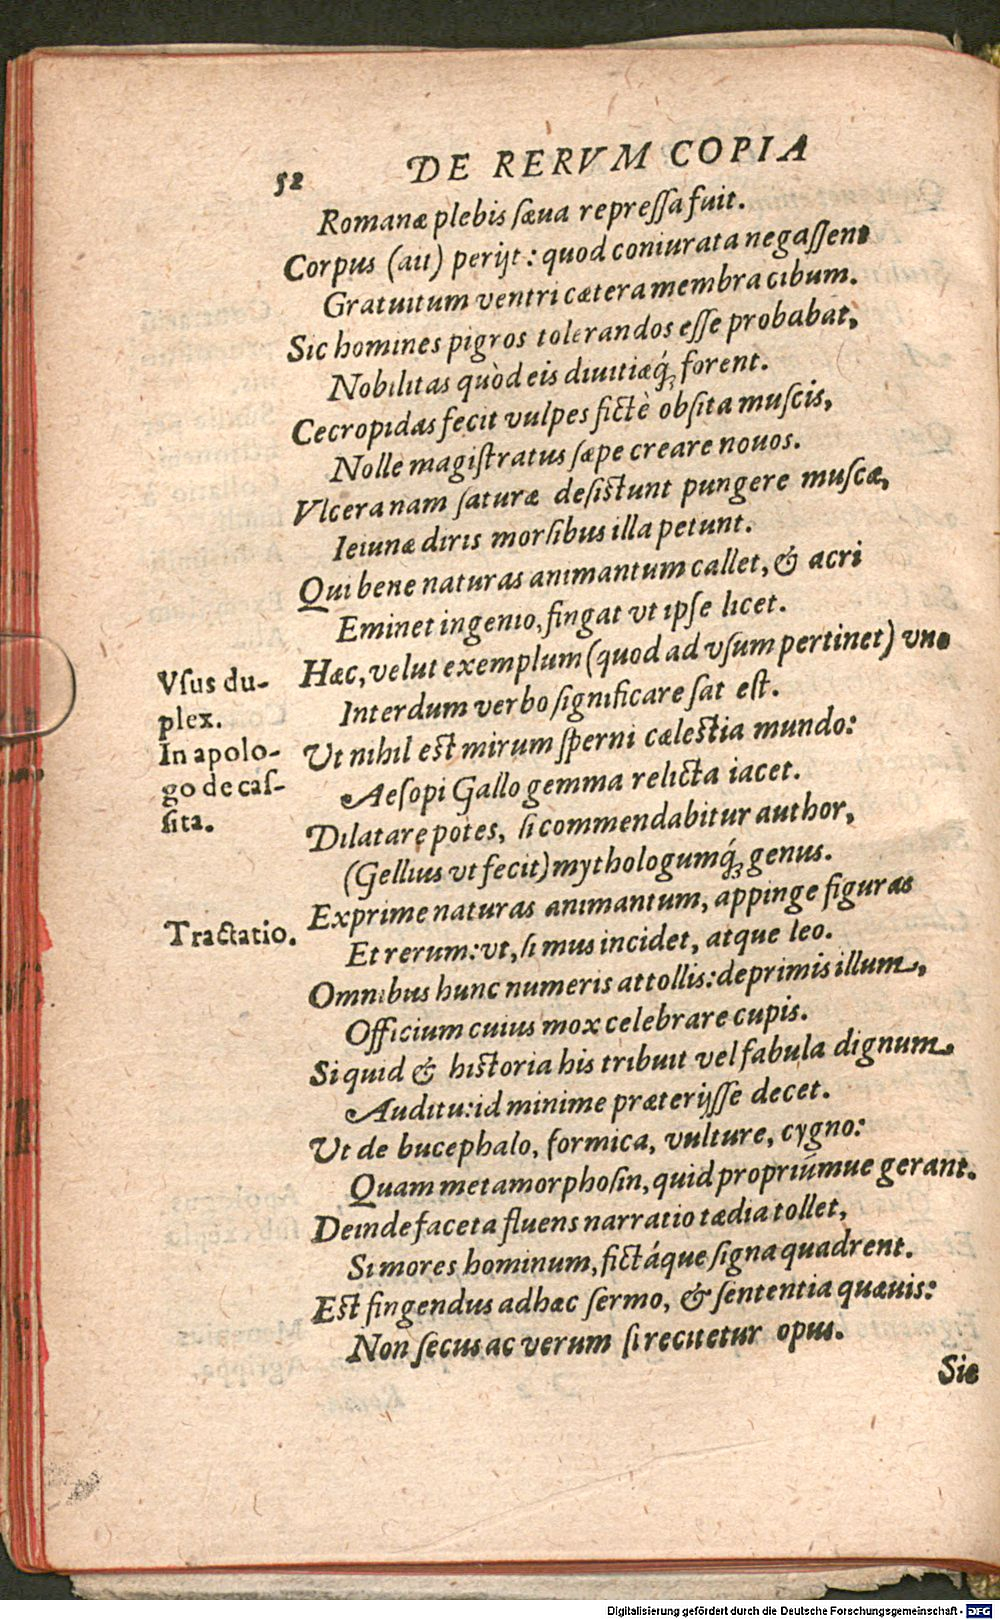 52 DE RERVM COPIA
Romanæ plebis sæua repressa fuit.
Corpus (ait) perijt: quod coniurata negassent
Gratuitum ventri cætera membra cibum.
Sic homines pigros tolerandos esse probabat,
Nobilitas quòd eis diuitiæq́; forent.
Cecropidas fecit vulpes fictè obsita muscis,
Nolle magistratus sæpe creare nouos.
Vlcera nam saturæ desistunt pungere muscæ,
Ieiunæ diris morsibus illa petunt.
Qui bene naturas animantum callet, & acri
Eminet ingenio, fingat vt ipse licet.
Hæc, velut exemplum (quod ad vsum pertinet) vno
Interdum verbo significare sat est.
Vt nihil est mirum sperni cælestia mundo:
Aesopi Gallo gemma relicta iacet.
Dilatare potes, si commendabitur author,
(Gellius vt fecit) mythologumq́; genus.
Exprime naturas animantum, appinge figuras
Et rerum: vt, si mus incidet, atque leo.
Omnibus hunc numeris attollis: deprimis illum,
Officium cuius mox celebrare cupis.
Si quid & historia his tribuit vel fabula dignum
Auditu: id minime præterijsse decet.
Vt de bucephalo, formica, vulture, cygno:
Quam metamorphosin, quid propriúmue gerant.
Deinde faceta fluens narratio tædia tollet,
Si mores hominum, fictáque signa quadrent.
Est fingendus adhæc sermo, & sententia quæuis:
Non secus ac verum si recitetur opus.
Sic
Vsus du-
plex.
In apolo-
go de cas-
sita.
Tractatio.
Digitalisierung gefördert durch die Deutsche Forschungsgemeinschaft - DFG